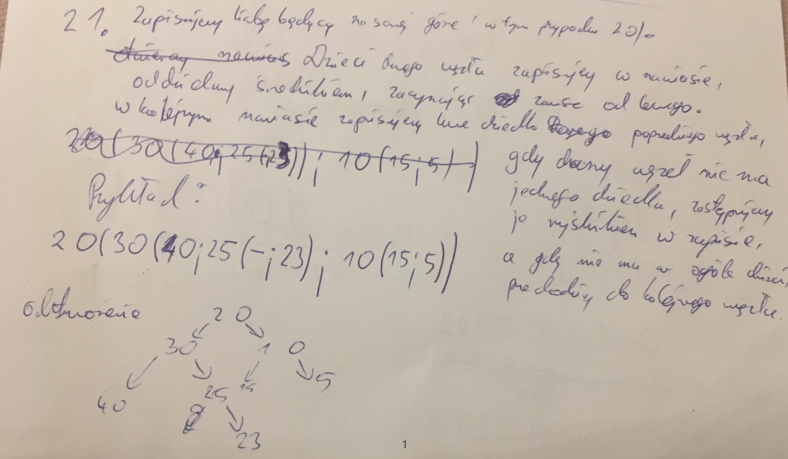 21. Zapisujemy liczbę będącą na samej górze (w tym przypadku 20)
Dzieci danego węzła zapisujemy w nawiasie,
oddzielamy średnikiem, zaczynając zawsze od lewego.
w kolejnym nawiasie zapisujemy dziecko poprzedniego węzła,
20(30(40;25(;23)); 10(15;5))
gdy dany węzeł nie ma
jednego dziecka, zastępujemy
je myślnikiem w zapisie,
a gdy nie ma w ogóle dzieci,
przechodzimy do kolejnego węzła.
Przykład:
20(30(40;25(-;23); 10(15;5))
odtworzenie
20
30 10
40 25 15 5
23
1